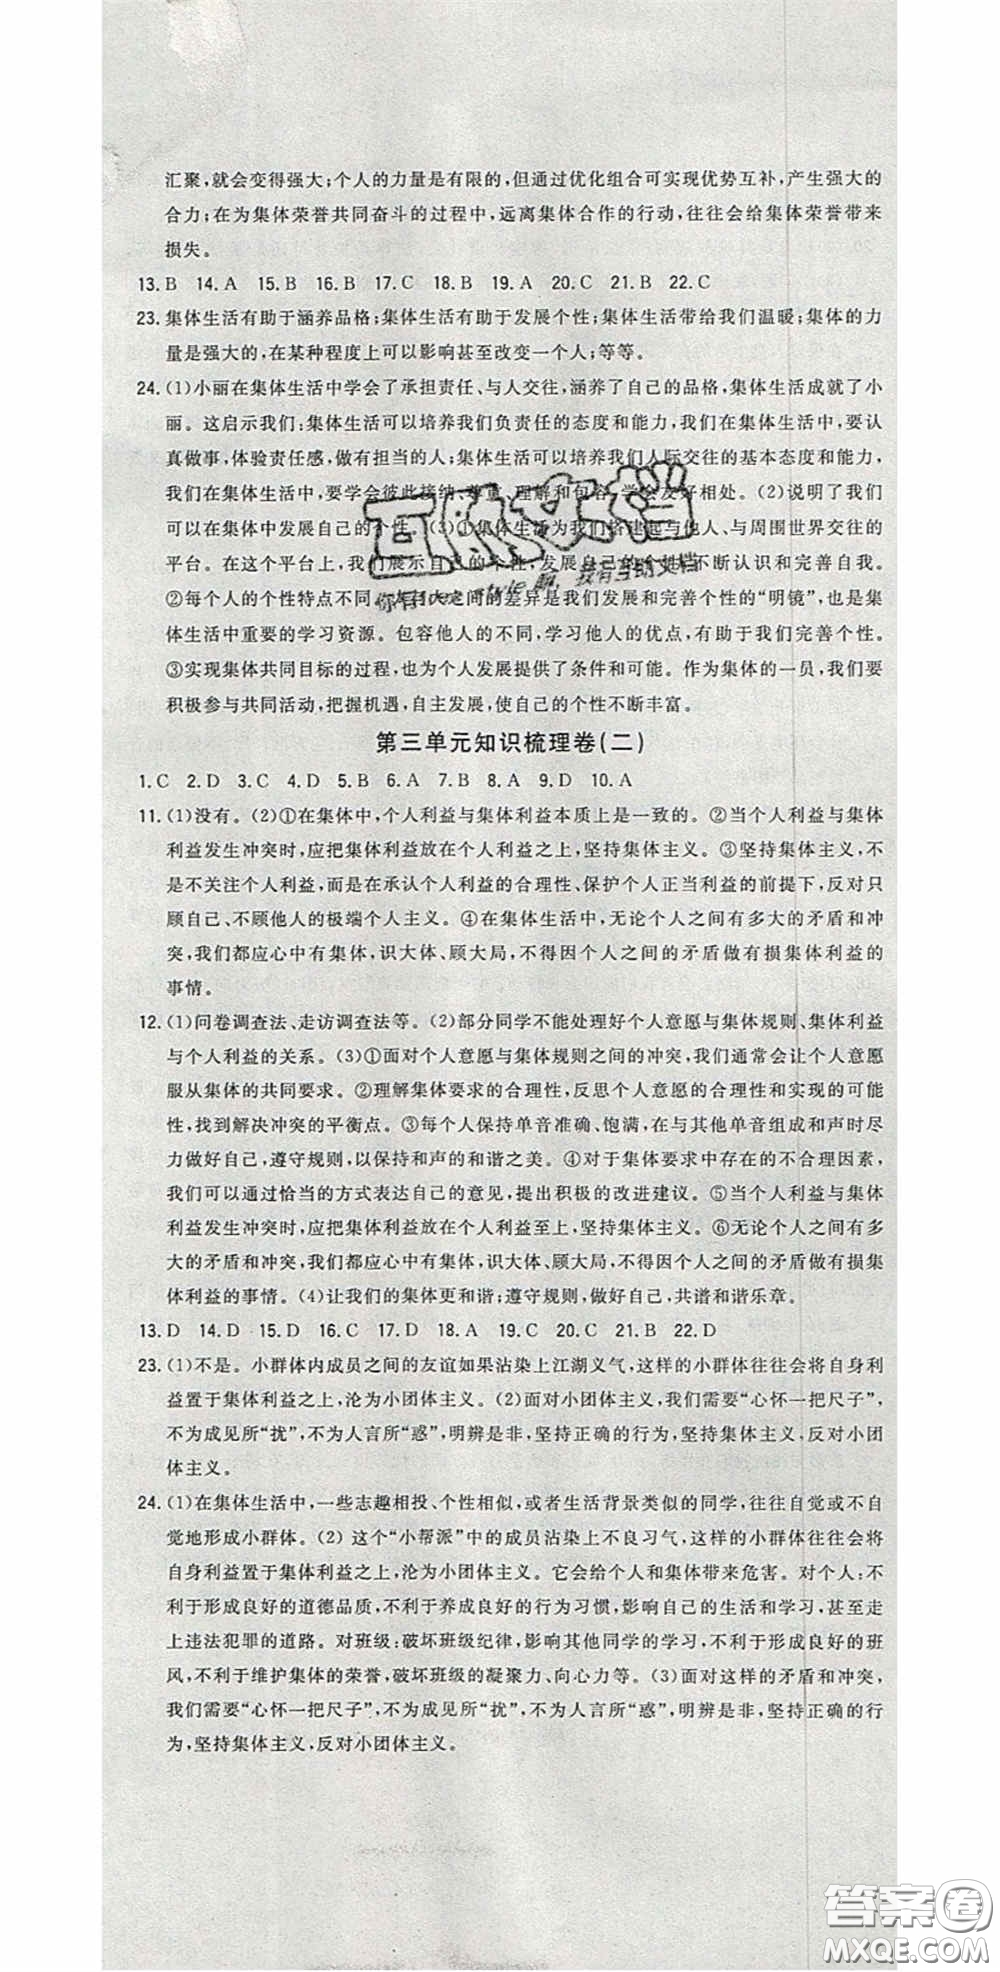 汇聚,就会变得强大;个人的力量是有限的,但通过优化组合可实现优势互补,产生强大的
合力;在为集体荣誉共同奋斗的过程中,远离集体合作的行动,往往会给集体荣誉带来
损失。
13. B 14. A 15. B 16. B 17. C 18. B 19. A 20. C 21. B 22. C
23. 集体生活有助于涵养品格;集体生活有助于发展个性;集体生活带给我们温暖;集体的力
量是强大的,在某种程度上可以影响甚至改变一个人;等等。
24. (1)小丽在集体生活中学会了承担责任、与人交往,涵养了自己的品格,集体生活成就了小
丽。这启示我们:集体生活可以培养我们负责任的态度和能力,我们在集体生活中,要认
真做事,体验责任感,做有担当的人;集体生活可以培养我们人际交往的基本态度和能力,
我们在集体生活中,要学会彼此接纳、尊重、理解和包容,学会友好相处。(2)说明了我们
可以在集体中发展自己的个性。(3)①集体生活为我们搭建起与他人、与周围世界交往的
平台。在这个平台上,我们展示自己的个性,发展自己的个性,不断认识和完善自我。
②每个人的个性特点不同,人与人之间的差异是我们发展和完善个性的“明镜”,也是集
体生活中重要的学习资源。包容他人的不同,学习他人的优点,有助于我们完善个性。
③实现集体共同目标的过程,也为个人发展提供了条件和可能。作为集体的一员,我们要
积极参与共同活动,把握机遇,自主发展,使自己的个性不断丰富。
第三单元知识梳理卷(二)
1. C 2. D 3. C 4. D 5. B 6. A 7. B 8. A 9. D 10. A
11. (1)没有。(2)①在集体中,个人利益与集体利益本质上是一致的。②当个人利益与集体
利益发生冲突时,应把集体利益放在个人利益之上,坚持集体主义。③坚持集体主义,不
是不关注个人利益,而是在承认个人利益的合理性、保护个人正当利益的前提下,反对只
顾自己、不顾他人的极端个人主义。④在集体生活中,无论个人之间有多大的矛盾和冲
突,我们都应心中有集体,识大体、顾大局,不得因个人之间的矛盾做有损集体利益的
事情。
12. (1)问卷调查法、走访调查法等。(2)部分同学不能处理好个人意愿与集体规则、集体利益
与个人利益的关系。(3)①面对个人意愿与集体规则之间的冲突,我们通常会让个人意愿
服从集体的共同要求。②理解集体要求的合理性,反思个人意愿的合理性和实现的可能
性,找到解决冲突的平衡点。③每个人保持单音准确、饱满,在与其他单音组成和声时尽
力做好自己,遵守规则,以保持和声的和谐之美。④对于集体要求中存在的不合理因素,
我们可以通过恰当的方式表达自己的意见,提出积极的改进建议。⑤当个人利益与集体
利益发生冲突时,应把集体利益放在个人利益至上,坚持集体主义。⑥无论个人之间有多
大的矛盾和冲突,我们都应心中有集体,识大体、顾大局,不因个人之间的矛盾做有损集
体利益的事情。(4)让我们的集体更和谐;遵守规则,做好自己,共谱和谐乐章。
13. D 14. D 15. D 16. C 17. D 18. A 19. C 20. C 21. B 22. D
23. (1)不是。小群体内成员之间的友谊如果沾染上江湖义气,这样的小群体往往会将自身利
益置于集体利益之上,沦为小团体主义。(2)面对小团体主义,我们需要“心怀一把尺子”,
不为成见所“扰”,不为人言所“惑”,明辨是非,坚持正确的行为,坚持集体主义,反对小团
体主义。
24. (1)在集体生活中,一些志趣相投、个性相似,或者生活背景类似的同学,往往自觉或不自
觉地形成小群体。(2) 这个“小帮派”中的成员沾染上不良习气,这样的小群体往往会将
自身利益置于集体利益之上,沦为小团体主义。它会给个人和集体带来危害。对个人:不
利于形成良好的道德品质,不利于养成良好的行为习惯,影响自己的生活和学习,甚至走
上违法犯罪的道路。对班级:破坏班级纪律,影响其他同学的学习,不利于形成良好的班
风,不利于维护集体的荣誉,破坏班级的凝聚力、向心力等。(3)面对这样的矛盾和冲突,
我们需要“心怀一把尺子”,不为成见所“扰”,不为人言所“惑”,明辨是非,坚持正确的行
为,坚持集体主义,反对小团体主义。
答案卷
MXQE.COM